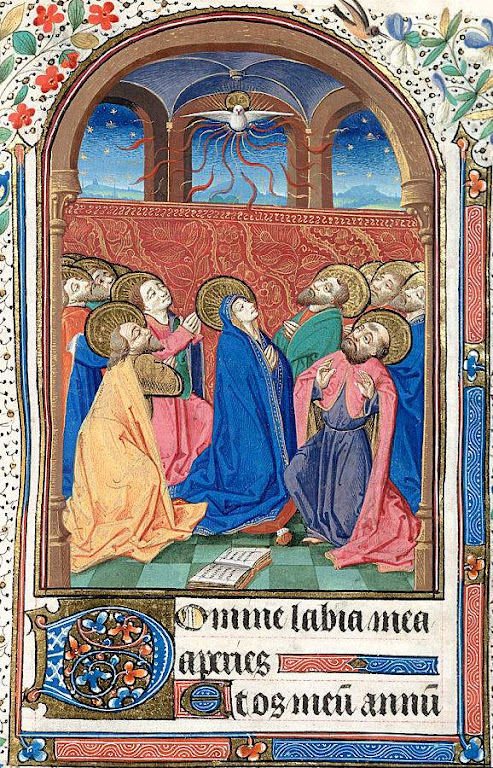 DOmine labia mea
aperies
Et os meū annū